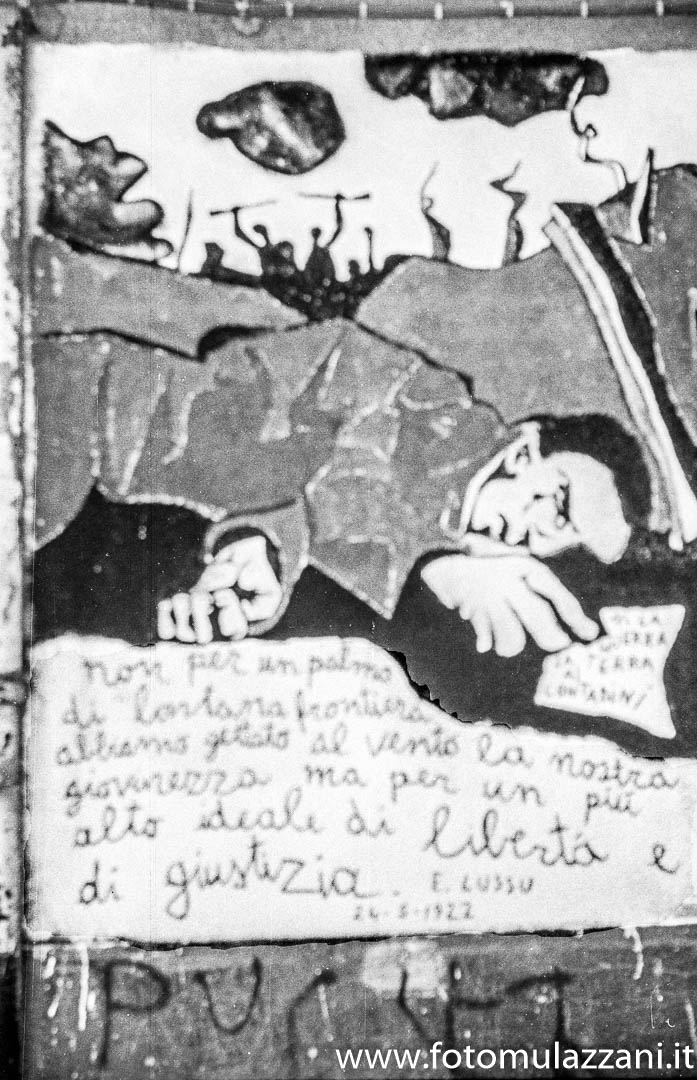 LA
GUERRA
LA TERRA
AI
CONTADINI
non per un palmo
di lontana frontiera
abbiamo gettato al vento la nostra
giovinezza ma per un più
alto ideale di libertá e
di giustizia. E. LUSSU
24-5-1922
www.fotomulazzani.it